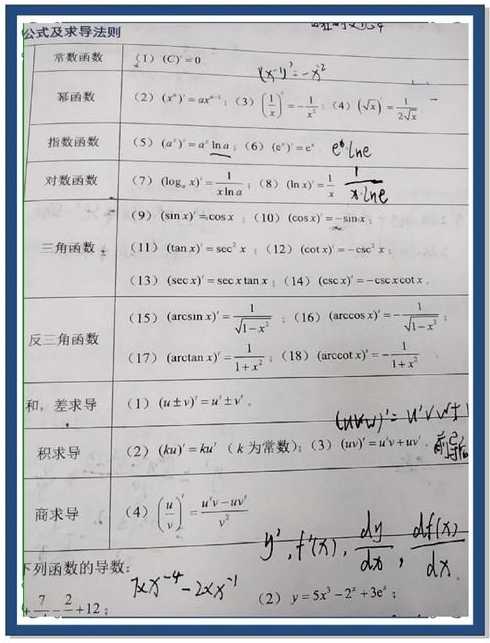 公式及求导法则
常数函数 (1) (C)'=0
(x⁻¹)'=-x⁻²
幂函数 (2) (xᵃ)'=axᵃ⁻¹; (3) (1/x)'=-1/x²; (4) (√x)'=1/(2√x)
指数函数 (5) (aˣ)'=aˣ ln a; (6) (eˣ)'=eˣ
对数函数 (7) (logₐ x)'=1/(x ln a); (8) (ln x)'=1/x 1/(x·lne)
(9) (sin x)'=cos x; (10) (cos x)'=-sin x;
三角函数 (11) (tan x)'=sec² x; (12) (cot x)'=-csc² x;
(13) (sec x)'=sec x tan x; (14) (csc x)'=-csc x cot x.
(15) (arcsin x)'=1/√(1-x²); (16) (arccos x)'=-1/√(1-x²);
反三角函数
(17) (arctan x)'=1/(1+x²); (18) (arccot x)'=-1/(1+x²)
和、差求导 (1) (u±v)'=u'±v'.
(uvw)'=u'vw+
积求导 (2) (ku)'=ku' (k为常数); (3) (uv)'=u'v+uv'.
商求导 (4) (u/v)'=(u'v-uv')/v²
y', f'(x), dy/dx, df(x)/dx.
下列函数的导数:
7x⁻⁴-2xx⁻¹
(2) y=5x³-2ˣ+3eˣ;
+12;